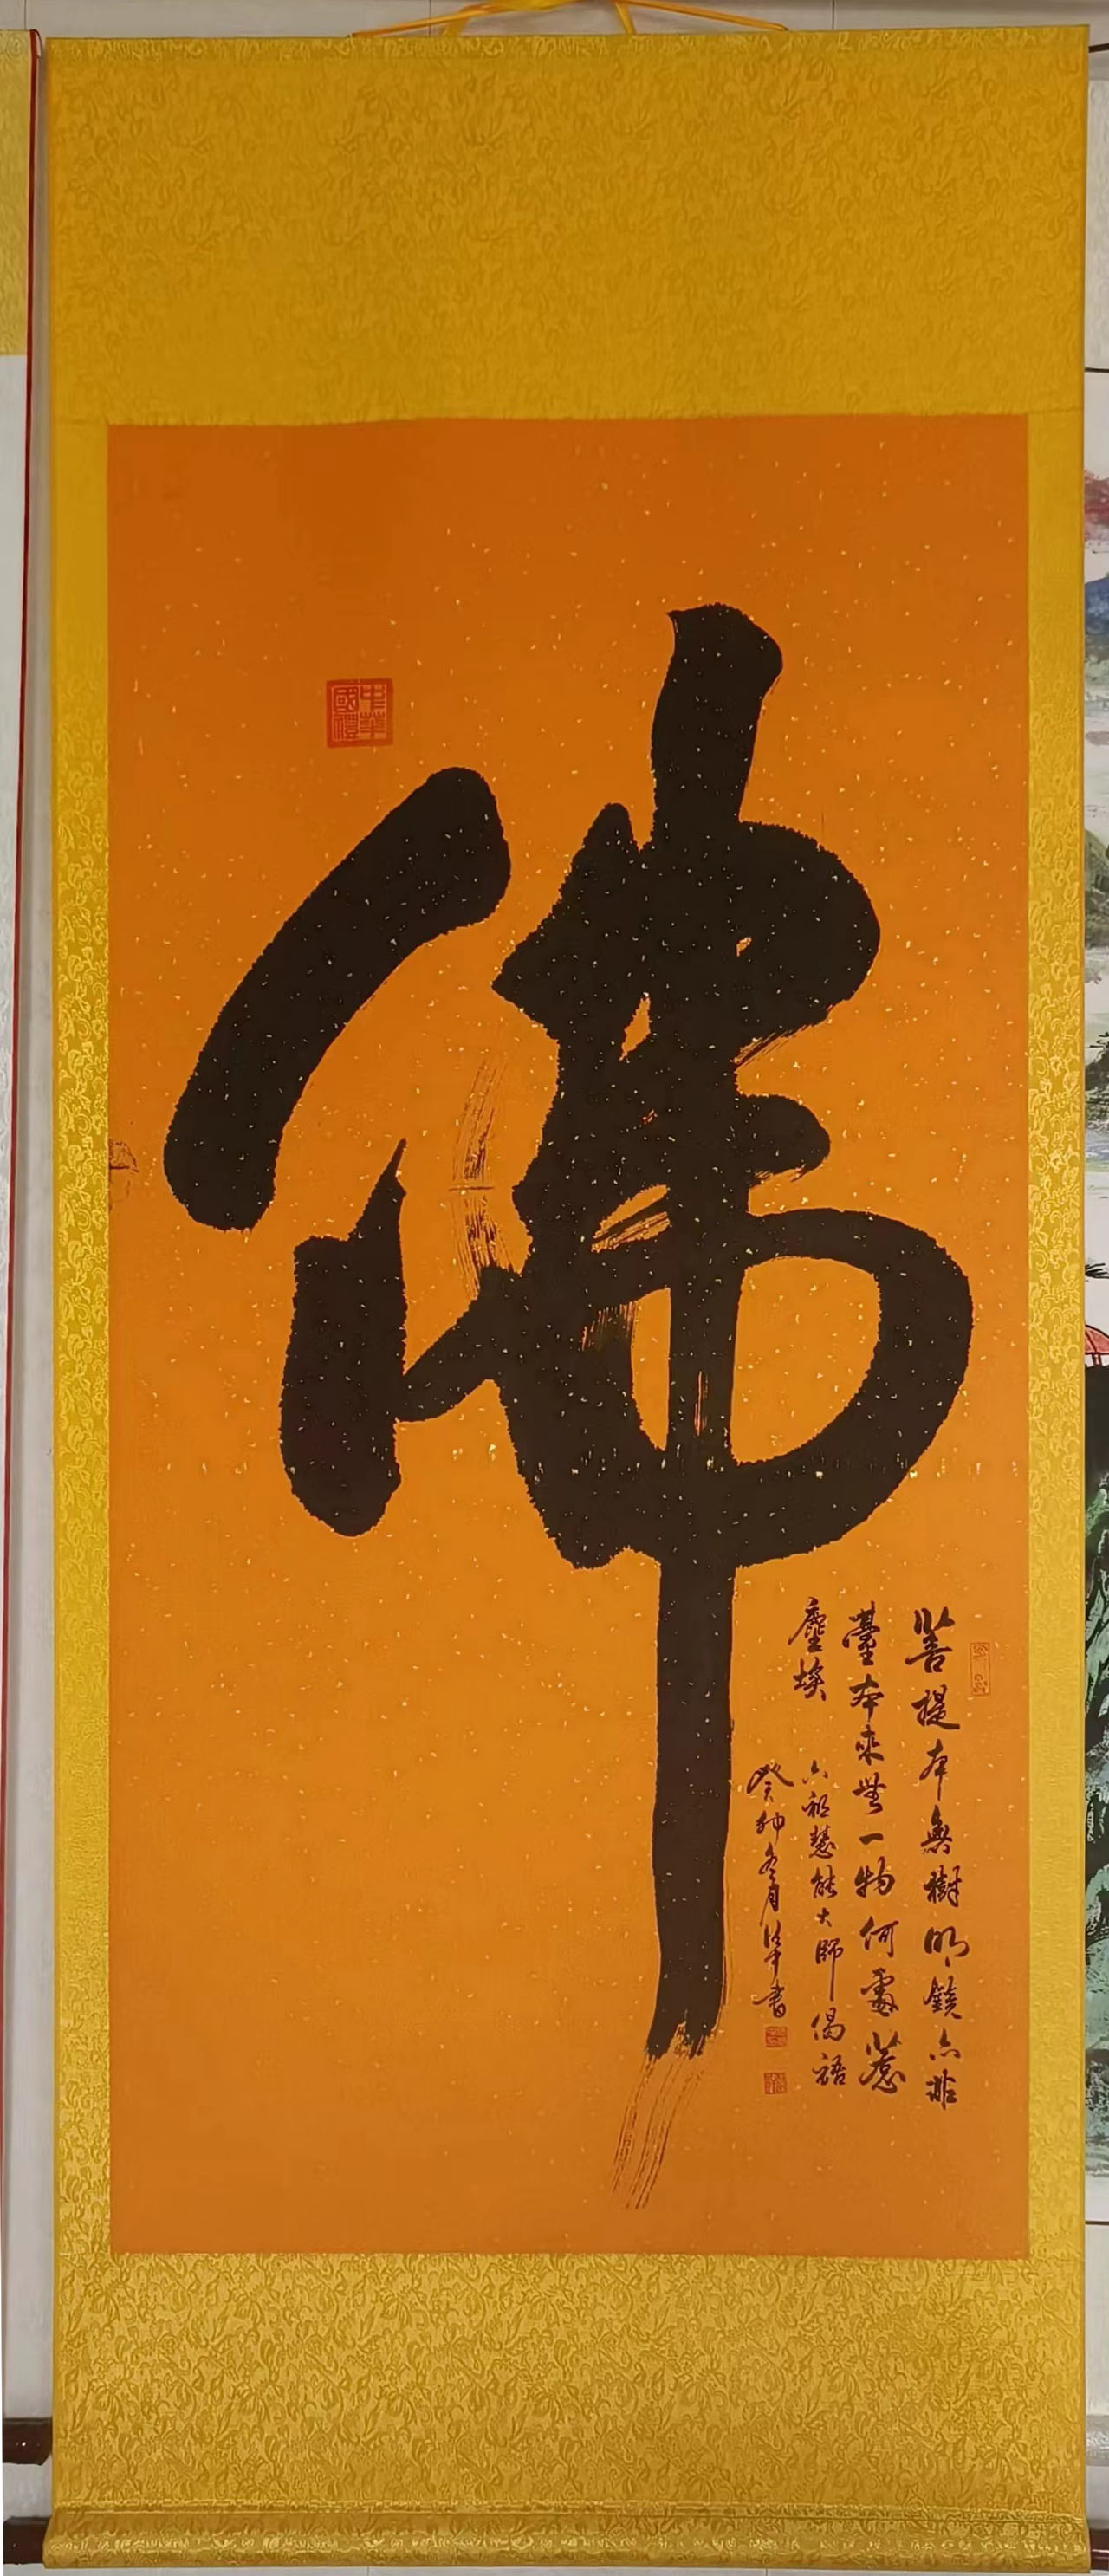 佛
菩提本無樹明鏡亦非
臺本來無一物何處惹
塵埃
六祖慧能大師偈語
癸卯冬月 書
中華國禮